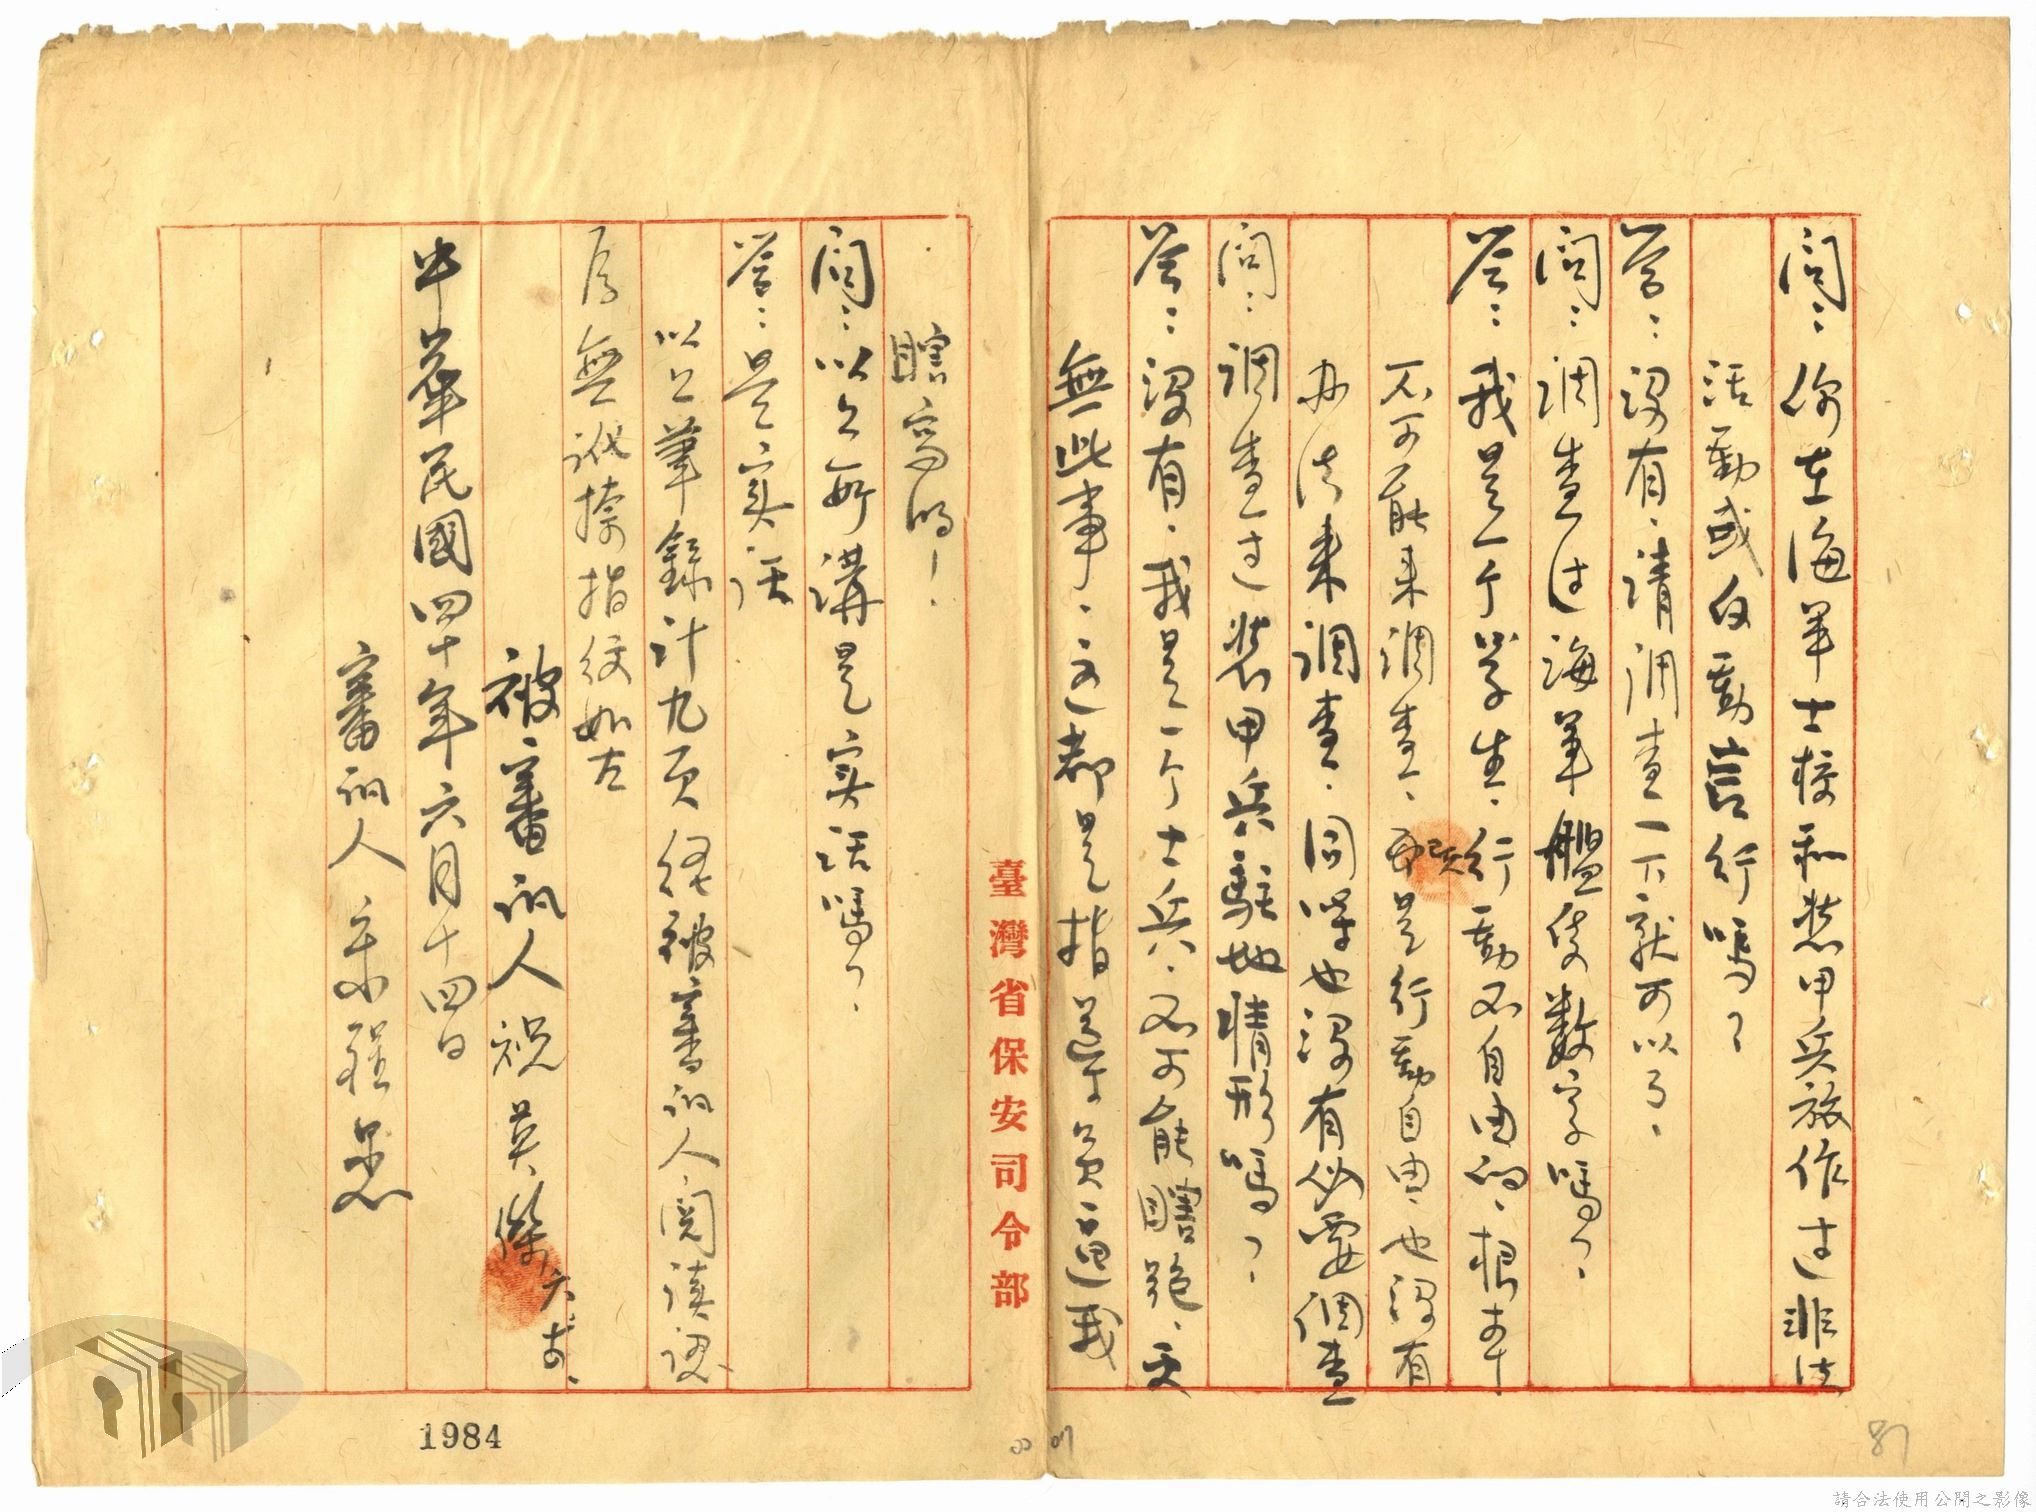 問：你在海軍士校和裝甲兵旅作过非法
活動或反動言行嗎？
答：沒有．請調查一下就可以了．
問：調查过海軍艦隻数字嗎？
答：我是一个学生．行動不自由的．根本
不可能来調查．就是行動自由．也沒有
办法来調查．同學也沒有必要調查
問：調查过裝甲兵駐地情形嗎？
答：沒有．我是一个士兵．不可能瞎跑．更
無此事．这都是指導員逼我
瞎寫的！
問：以上所講是实話嗎？
答：是实話
以上筆錄計九頁经被審訊人閱讀認
后無訛捺指紋如左
被審訊人祝英傑
右拇
中華民國四十年六月十四日
審訊人
臺灣省保安司令部
1984
87
請合法使用公開之影像